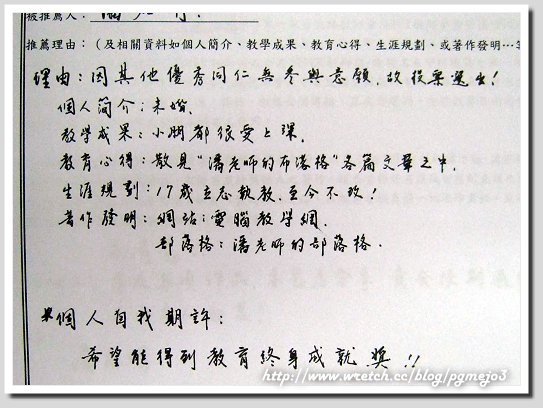 被推薦人：潘
推薦理由：（及相關資料如個人簡介、教學成果、教育心得、生涯規劃、或著作發明…等
理由：因其他優秀同仁無參與意願，故投票選出！
個人簡介：未婚．
教學成果：小朋都很愛上課．
教育心得：散見"潘老師的部落格"各篇文章之中．
生涯規劃：17歲立志執教，至今不改！
著作發明：網站：電腦教學網．
部落格：潘老師的部落格．
※個人自我期許：
希望能得到教育終身成就獎！！
http://www.wretch.cc/blog/pgmejo3